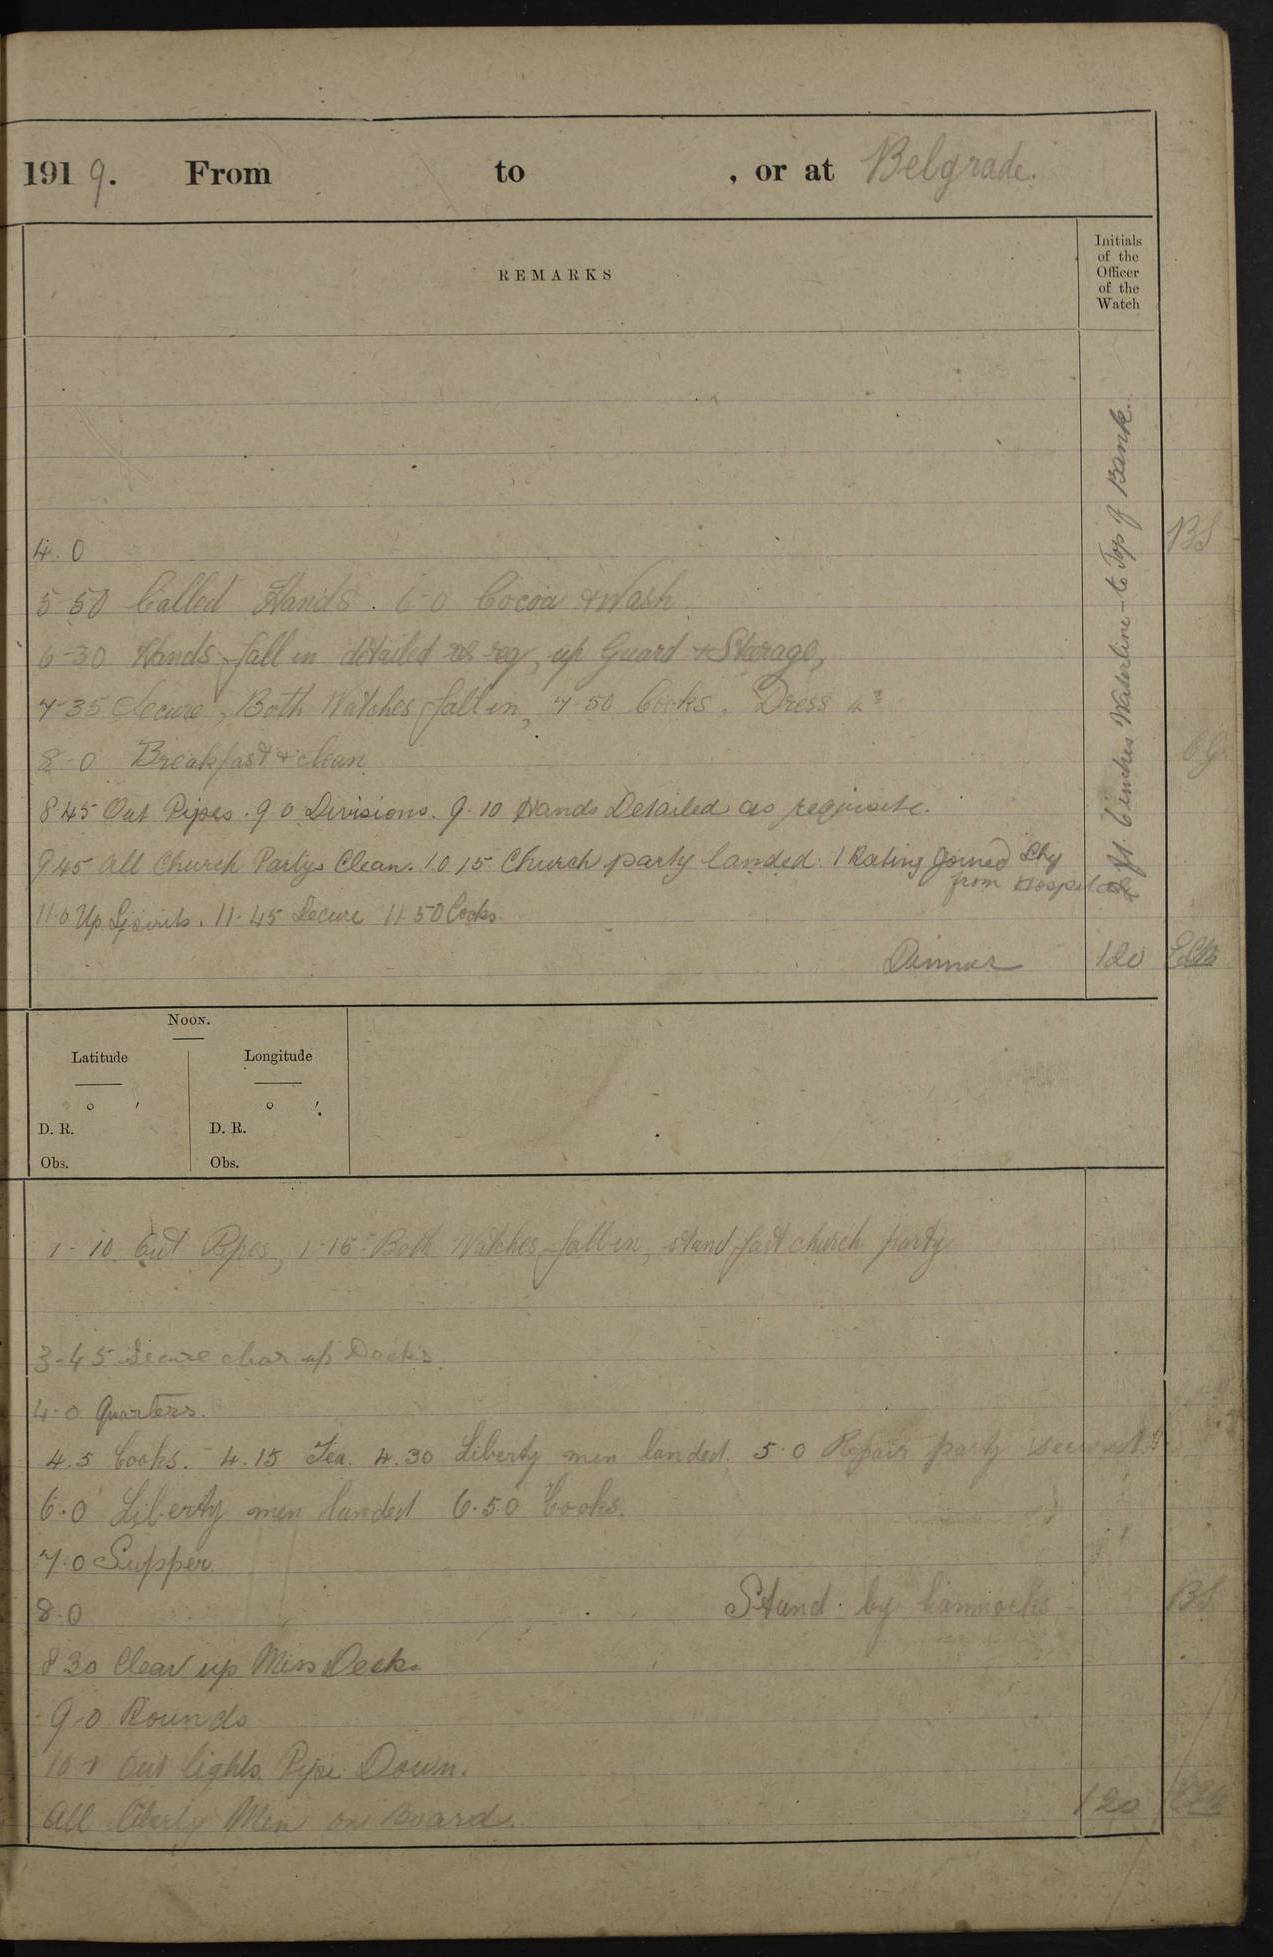 1919. From to , or at Belgrade.
REMARKS
Initials
of the
Officer
of the
Watch
2 ft. 6 inches Waterline - to Top of Bank.
4.0 BS
5-50 Called Hands. 6 0 Cocoa & Wash
6-30 Hands fall in detailed as req, up Guard & Steerage,
7-35 Secure, Both Watches fall in, 7-50 Cooks. Dress
8-0 Breakfast & clean
8 45 Out Pipes. 9 0 Divisions. 9.10 Hands Detailed as requisite.
9 45 All Church Partys Clean. 10 15 Church party landed. 1 Rating Joined Shp
from Hospital
11.0 Up Spirits. 11.45 Secure 11.50 Cooks
Dinner 120
Noon.
Latitude Longitude
° ′ ° ′
D. R. D. R.
Obs. Obs.
1-10 Out Pipes, 1-15 Both Watches fall in, stand fast church party
3-45 Secure clear up Decks.
4.0 Quarters.
4.5 Cooks. - 4.15 Tea. 4.30 Liberty men landed. 5.0 Repair party secured.
6.0 Liberty men landed 6.50 Cooks.
7.0 Supper.
8.0 Stand by hammocks BS
8 30 Clear up Mess Decks
9-0 Rounds
Out lights. Pipe Down.
All liberty Men on Board. 120